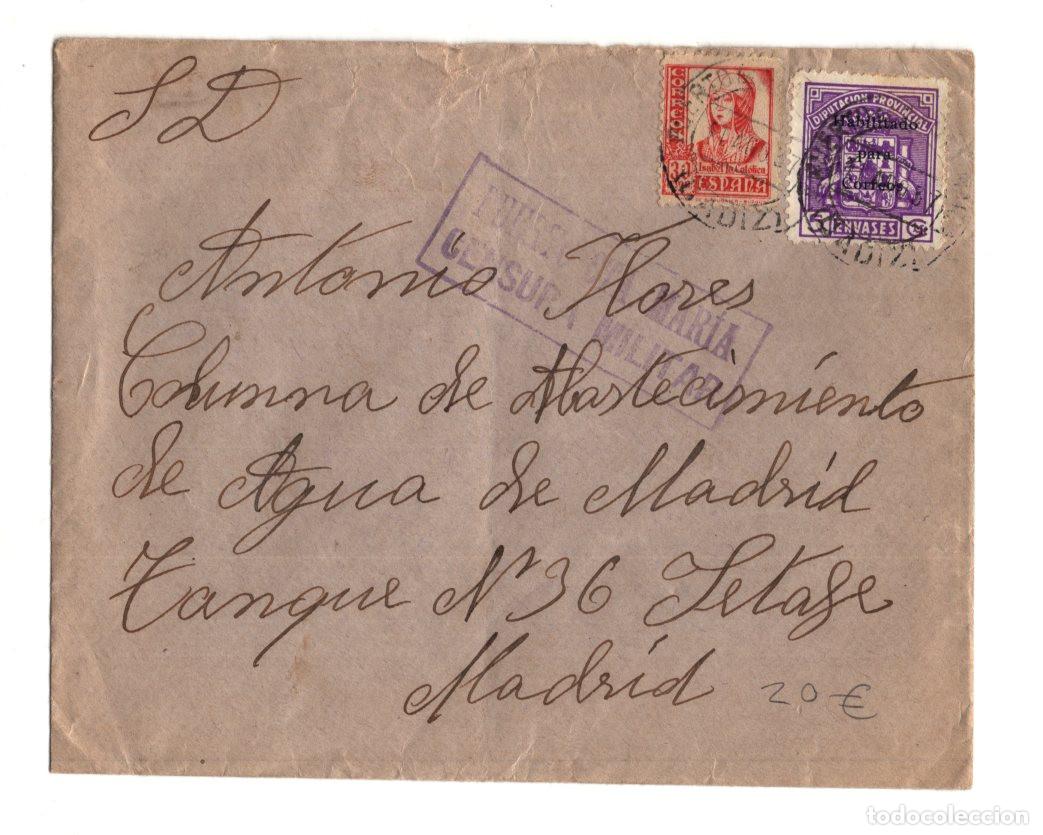 SD
CORREOS
30
Isabel la Católica
ESPAÑA
DIPUTACION PROVINCIAL
Habilitado
para
Correos
5 ENVASES Cs
CADIZ
CENSURA MILITAR
Antonio Flores
Columna de Abastecimiento
de Agua de Madrid
Tanque Nº 36 Letage
Madrid
20 €
todocoleccion